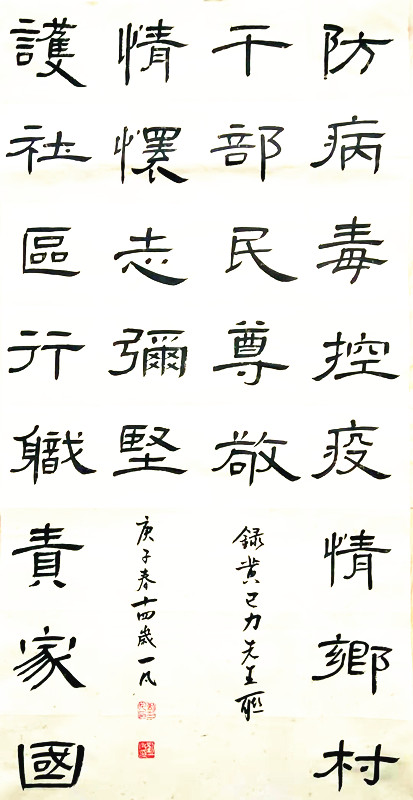 防病毒控疫情鄉村
干部民尊敬
録黄已力先生联
護社區行職責家國
情懷志彌堅
庚子春十四歲一凡